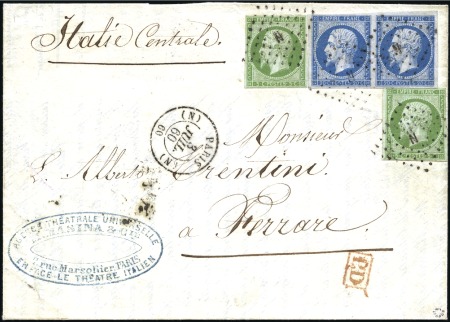 Italie Centrale.
EMPIRE FRANC
EMPIRE FRANC
EMPIRE FRANC
EMPIRE FRANC
PARIS (N)
JUIL
60
(N) 60
Monsieur
L. Alberto Trentini
à Ferrare
THÉATRALE UNIVERSELLE
& Cie
rue Marsollier PARIS
EN FACE LE THÉATRE ITALIEN
P.D